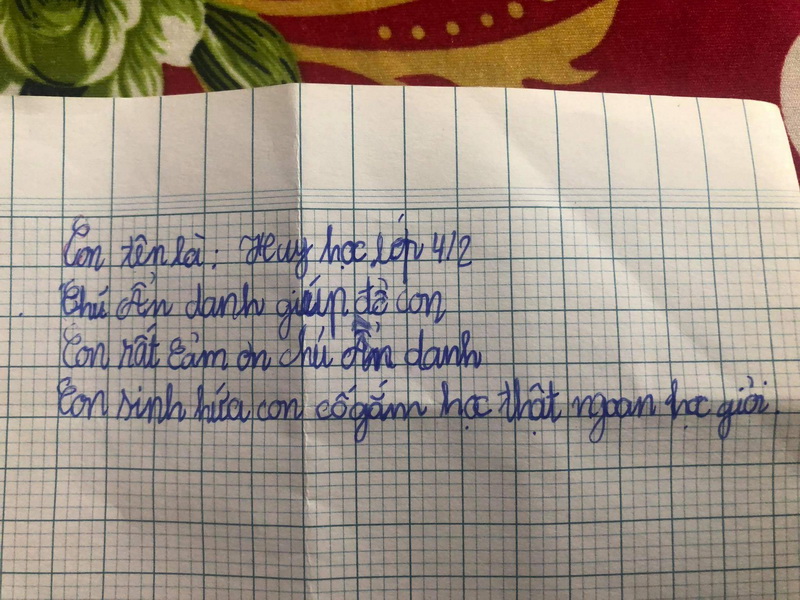 Con tên là: Huy học lớp 4/2
Chú Ẩn danh giúp đở con
Con rất cảm ơn chú Ẩn danh
Con sinh hứa con cố gắm học thật ngoan học giỏi.